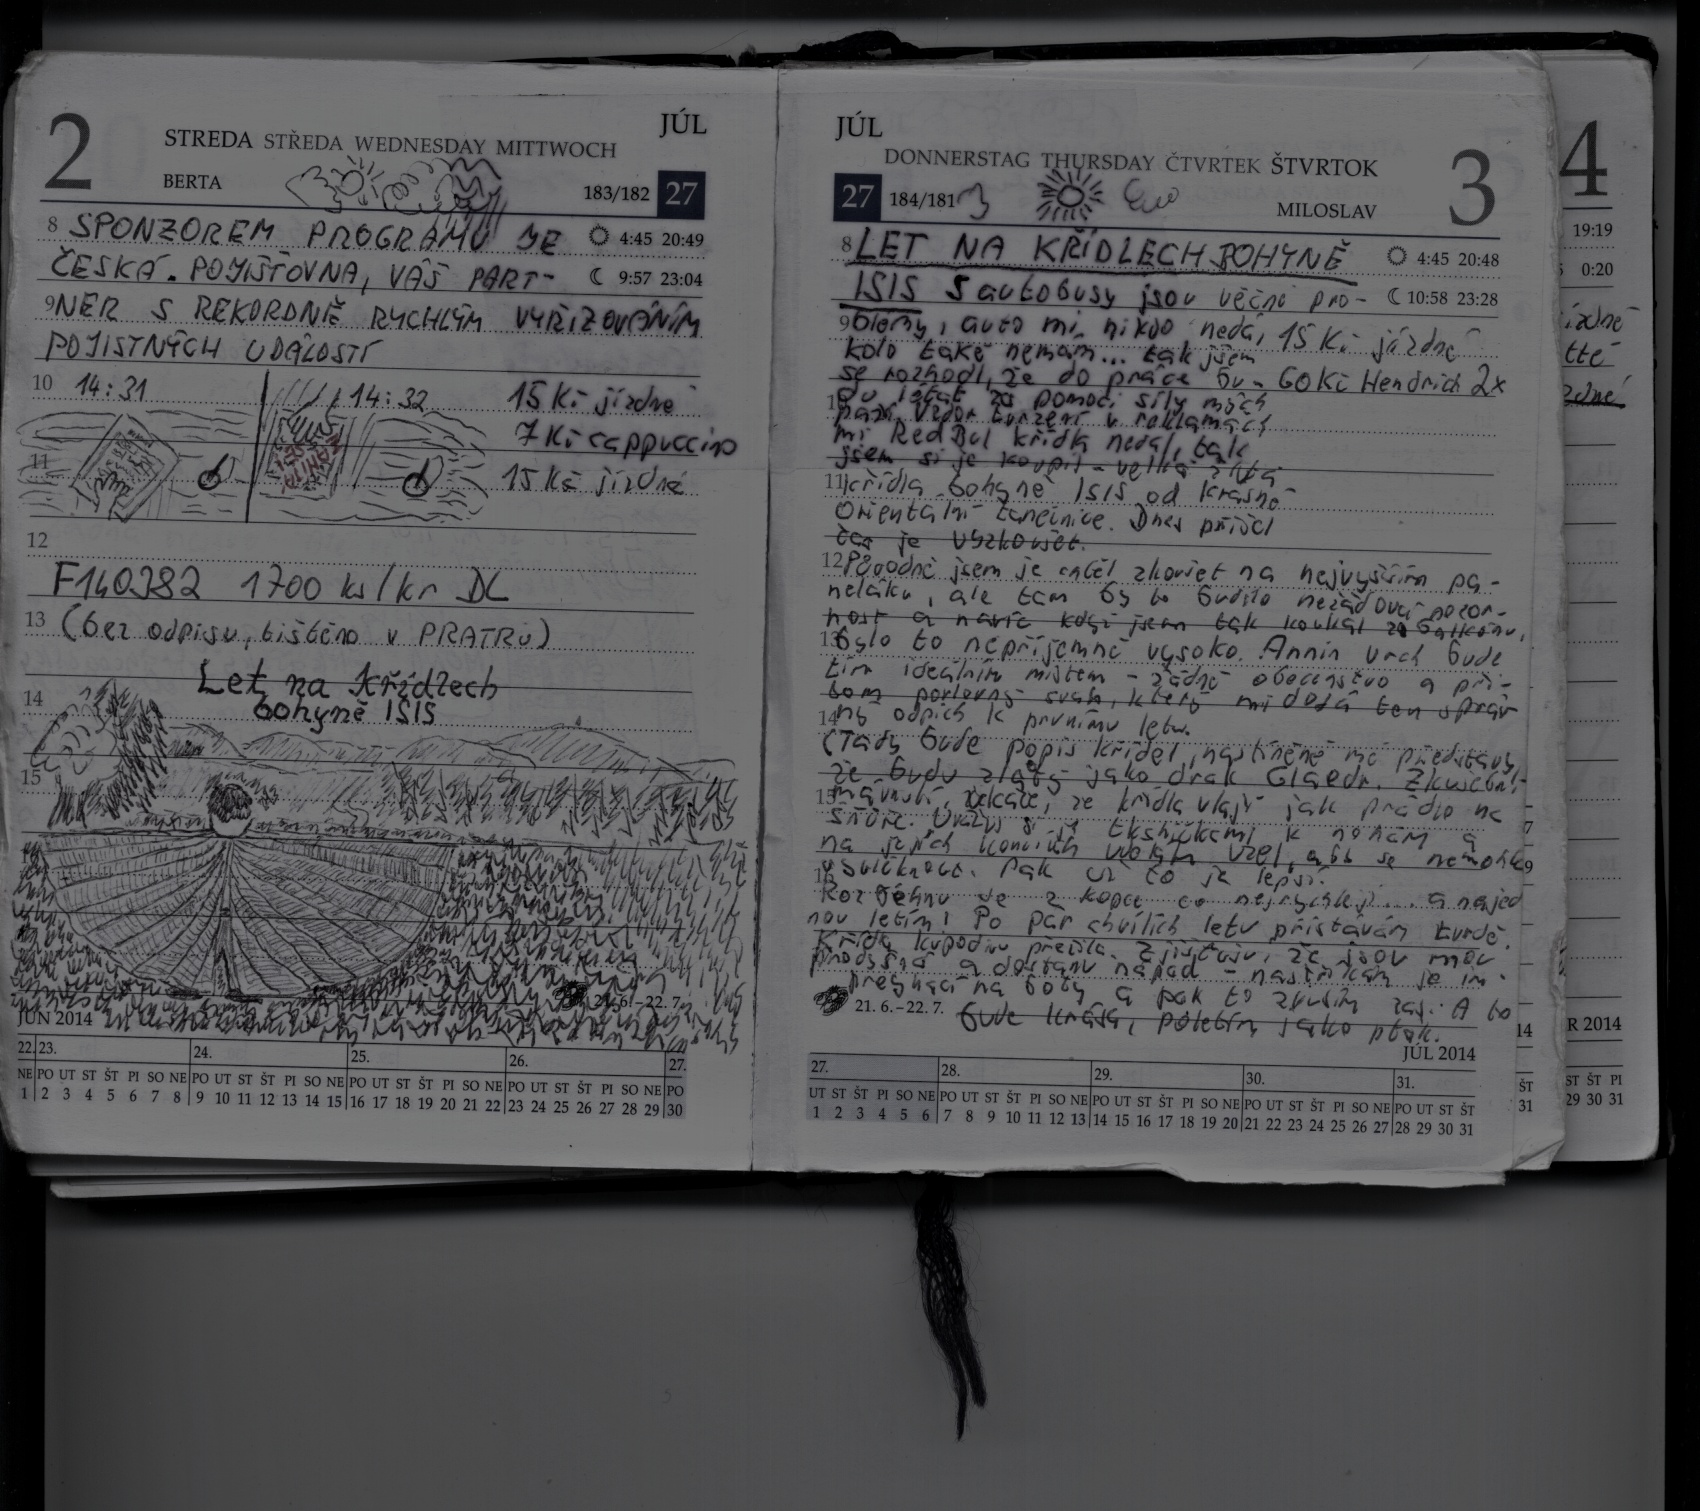 2
STREDA STŘEDA WEDNESDAY MITTWOCH
JÚL
BERTA
183/182 27
8 SPONZOREM PROGRAMU JE
4:45 20:49
ČESKÁ. POJIŠŤOVNA, VÁŠ PART-
9:57 23:04
9 NER S REKORDNĚ RYCHLÝM VYŘIZOVÁNÍM
POJISTNÝCH UDÁLOSTÍ
10 14:31
14:32
15 Kč jízdné
7 Kč cappuccino
11
15 Kč jízdné
12
F140282 1700 ks/kr DL
13 (bez odpisu, tištěno v PRATRU)
Let na křídlech
14
bohyně ISIS
15
21.6.–22.7.
JÚN 2014
22. 23. 24. 25. 26. 27.
NE PO UT ST ŠT PI SO NE PO UT ST ŠT PI SO NE PO UT ST ŠT PI SO NE PO UT ST ŠT PI SO NE PO
1 2 3 4 5 6 7 8 9 10 11 12 13 14 15 16 17 18 19 20 21 22 23 24 25 26 27 28 29 30
JÚL
DONNERSTAG THURSDAY ČTVRTEK ŠTVRTOK
3
27 184/181
MILOSLAV
8 LET NA KŘÍDLECH BOHYNĚ
4:45 20:48
ISIS S autobusy jsou věčné pro-
10:58 23:28
9 blémy, auto mi nikdo nedá, 15 Kč jízdné
kolo také nemám... tak jsem
se rozhodl, že do práce bu- 60 Kč Hendrich 2x
10 du létat za pomoci síly mých
paží. Vzdor tvrzení v reklamách
mi Red Bul křídla nedal, tak
jsem si je koupil - velká zlatá
11 křídla bohyně ISIS od krásné
orientální tanečnice. Dnes přišel
čas je vyzkoušet.
12 Původně jsem je chtěl zkoušet na nejvyšším pa-
neláku, ale tam by to budilo nežádoucí pozor-
nost a navíc když jsem tak koukal z balkónu,
13 bylo to nepříjemně vysoko. Annin vrch bude
tím ideálním místem - žádné obecenstvo a při-
tom povlovný svah, který mi dodá ten správ
14 ný odpich k prvnímu letu.
(Tady bude popis křídel, nastíněné mé představy,
že budu zlatý jako drak Glaedr. Zkušební
15 mávnutí, že křídla vlají jak prádlo na
šňůře. Uvážu si je tkaničkami k nohám a
na jejich koncích uvážu uzel, aby se nemohla
16 vysvléknout. Pak už to je lepší.
Rozběhnu se z kopce co nejrychleji... a najed
nou letím! Po pár chvílích letu přistávám tvrdě.
Křídla kupodivu přežila. Zjišťuju, že jsou moc
prodyšná a dostanu nápad - nastříkám je im-
pregnací na boty a pak to zkusím zas. A to
21.6.–22.7. bude krása, poletím jako pták.
JÚL 2014
27. 28. 29. 30. 31.
UT ST ŠT PI SO NE PO UT ST ŠT PI SO NE PO UT ST ŠT PI SO NE PO UT ST ŠT PI SO NE PO UT ST ŠT
1 2 3 4 5 6 7 8 9 10 11 12 13 14 15 16 17 18 19 20 21 22 23 24 25 26 27 28 29 30 31
4
19:19
0:20
R 2014
14
ŠT
31
ST ŠT PI
29 30 31